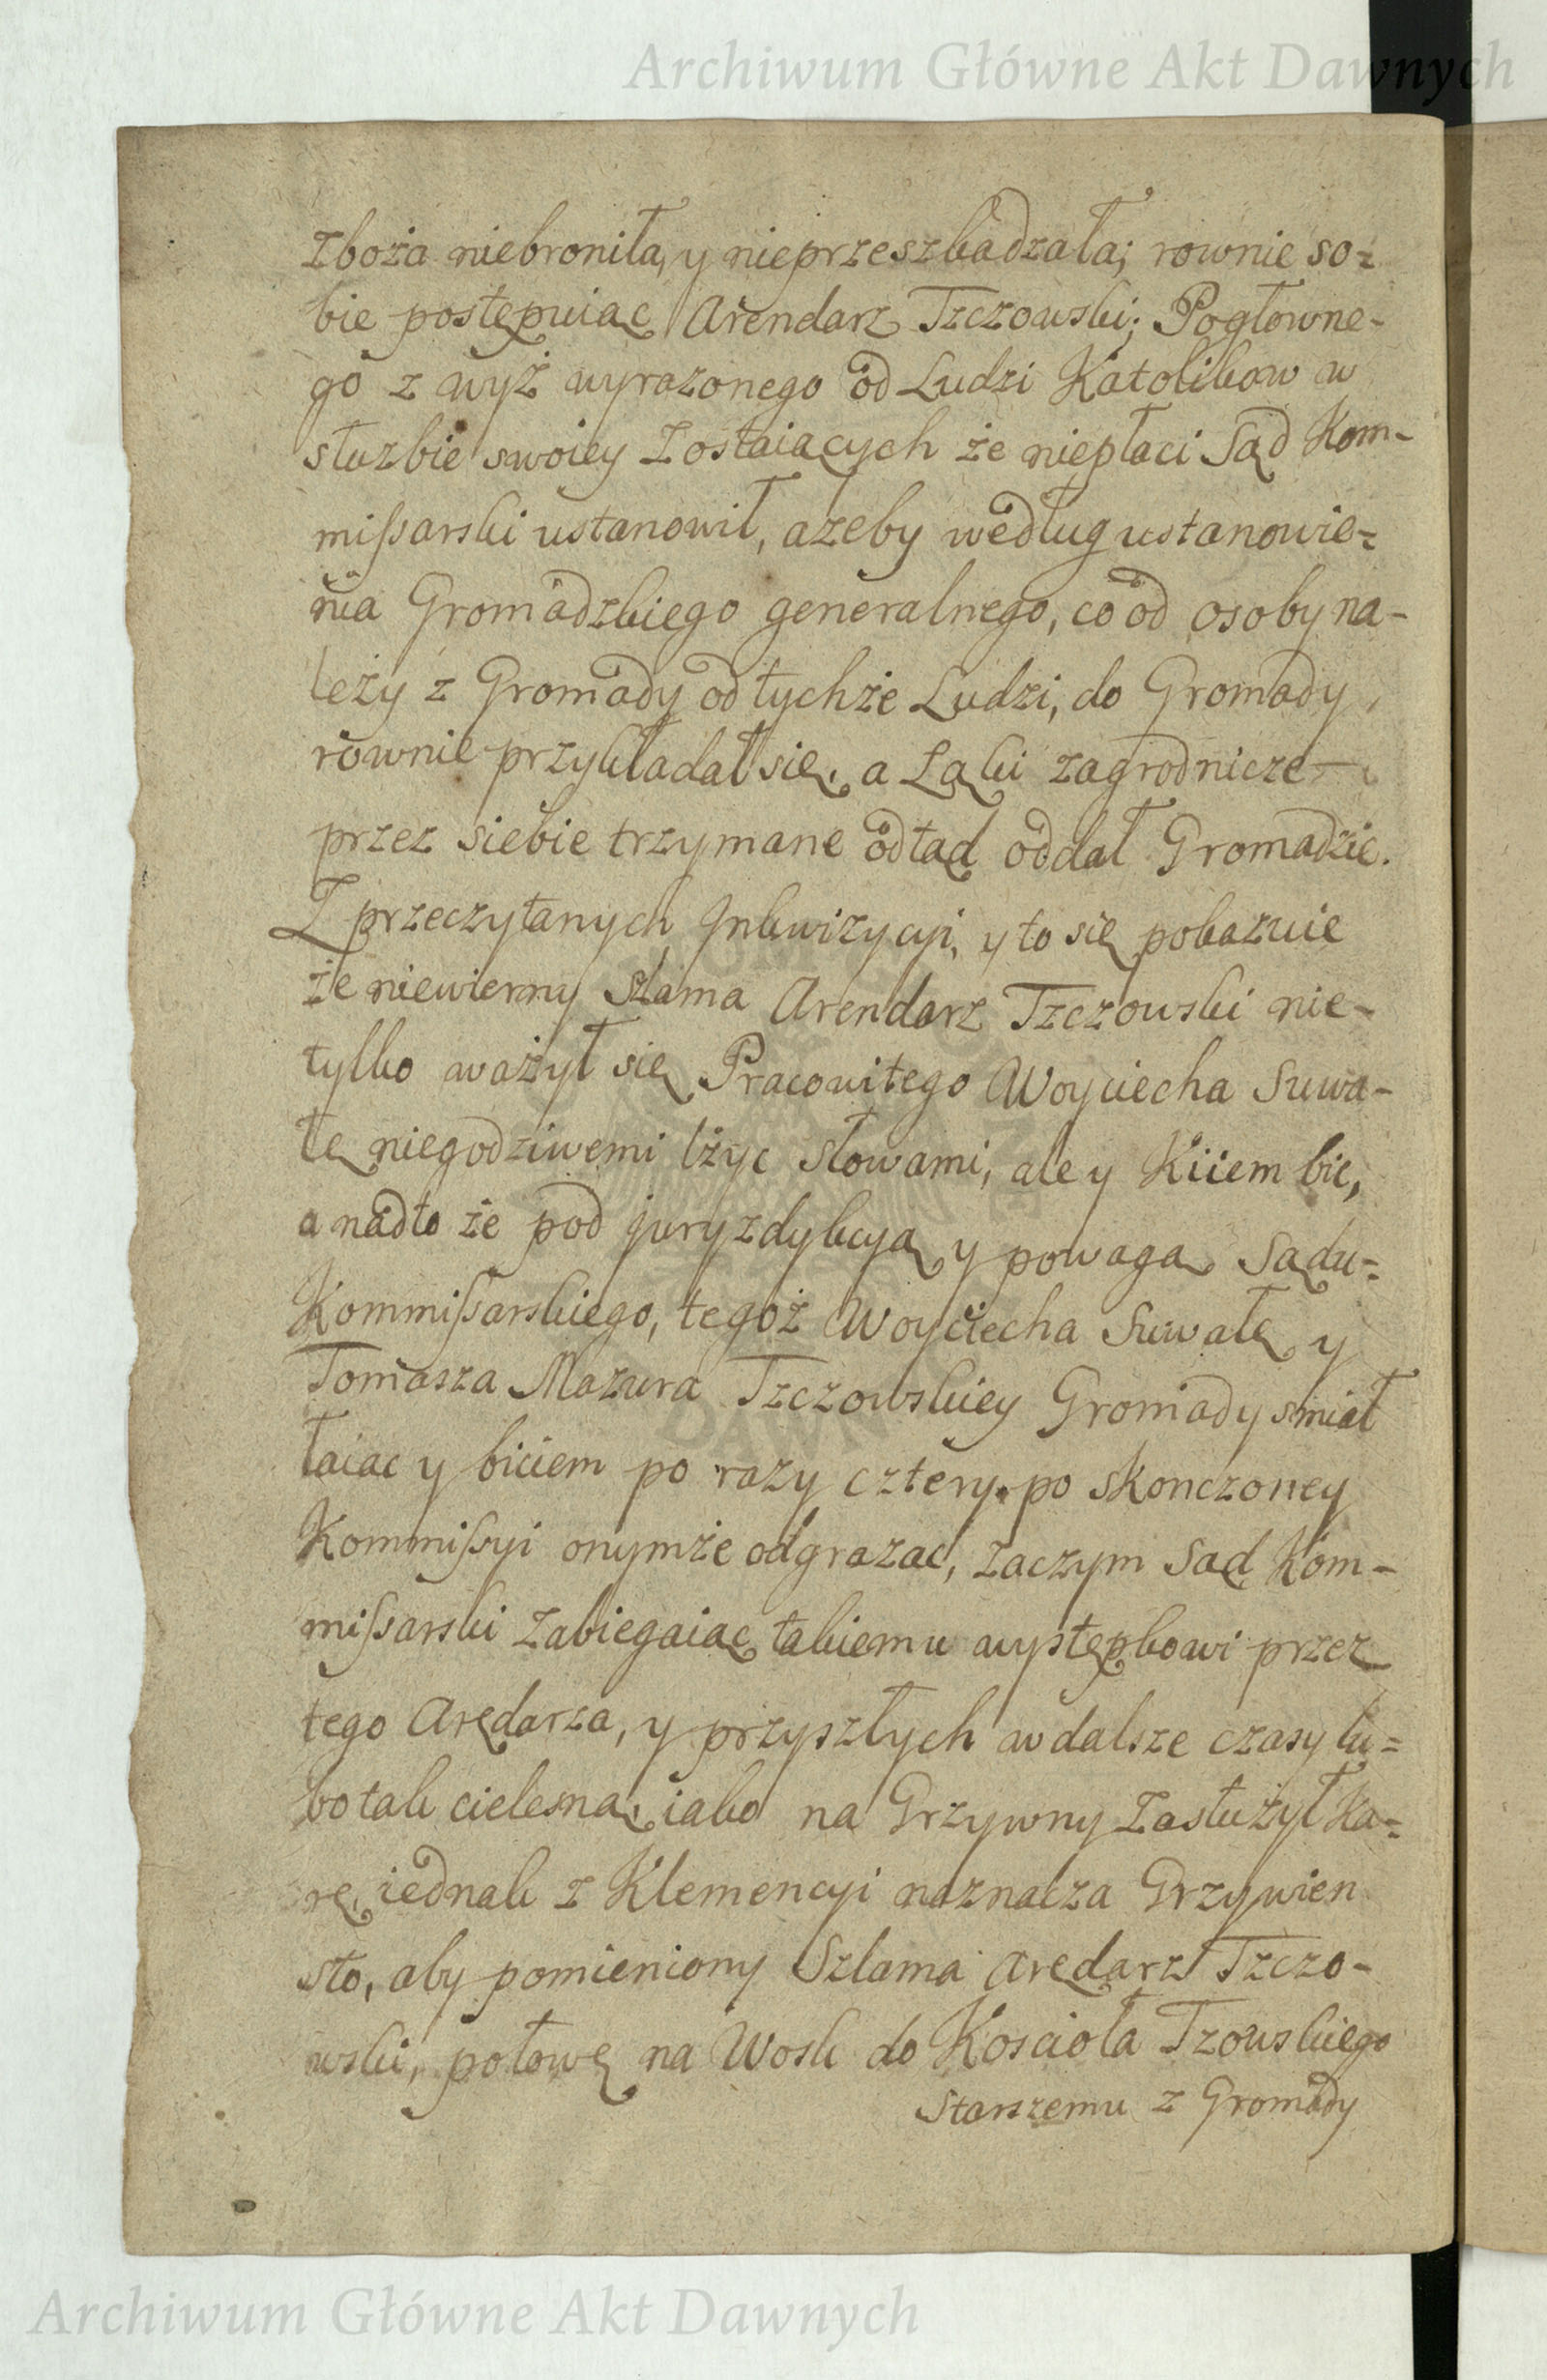 Archiwum Główne Akt Dawnych
zboża niebroniła, y nieprzeszkadzała; rownie so=
bie postępuiąc Arendarz Tzczowski; Pogłowne-
go z wyż wyrazonego od Ludzi Katolikow w
służbie swoiey Zostaiących że niepłaci Sąd Kom-
missarski ustanowił, azeby według ustanowie=
nia Gromadzkiego generalnego, co od osoby na-
leży z Gromady od tychże Ludzi, do Gromady
rownie przykładał się, a Łąki zagrodnicze
przez siebie trzymane odtąd oddał Gromadzie.
Z przeczytanych Inkwizycyi, y to się pokazuie
że niewierny Szlama Arendarz Tzczowski nie-
tylko ważył się Pracowitego Woyciecha Suwa-
łę niegodziwemi lżyc słowami, ale y Kiiem bic,
a nadto że pod juryzdykcyą y powagą Sądu=
Kommissarskiego, tegoż Woyciecha Suwałę y
Tomasza Mazura Tzczowskiey Gromady smiał
łaiac y biciem po razy cztery po skonczoney
Kommissyi onymże odgrazac, zaczym Sąd Kom-
missarski Zabiegaiąc takiemu występkowi przez
tego Arędarza, y przyszłych w dalsze czasy lu=
bo tak cielesną, iako na Grzywny Zasłużył Ka=
rę, iednak z Klemencyi naznacza Grzywien
sto, aby pomieniony Szlama Arędarz Tzczo-
wski, połowę na Wosk do Koscioła Tzowskiego
Starszemu z Gromady
Archiwum Główne Akt Dawnych